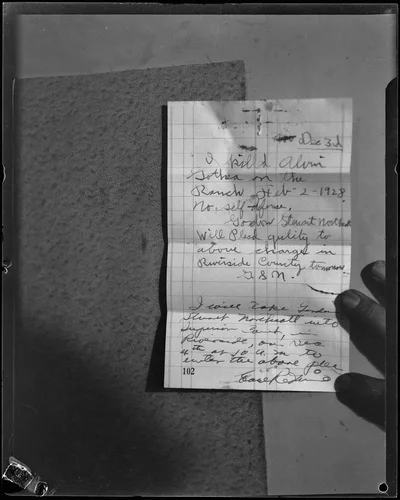 Dec 3d
I killd Alvin
Gothea on the
Ranch Feb-2-1928
No self defense.
Gordon Stewart Northcott
Will Plead guilty to
above charge in
Riverside County tomorrow
G.S.N.
I will take Gordon
Stewart Northcott into
Superior Court, in
Riverside, on Dec
4th at 10 a.m to
enter the above plea
102